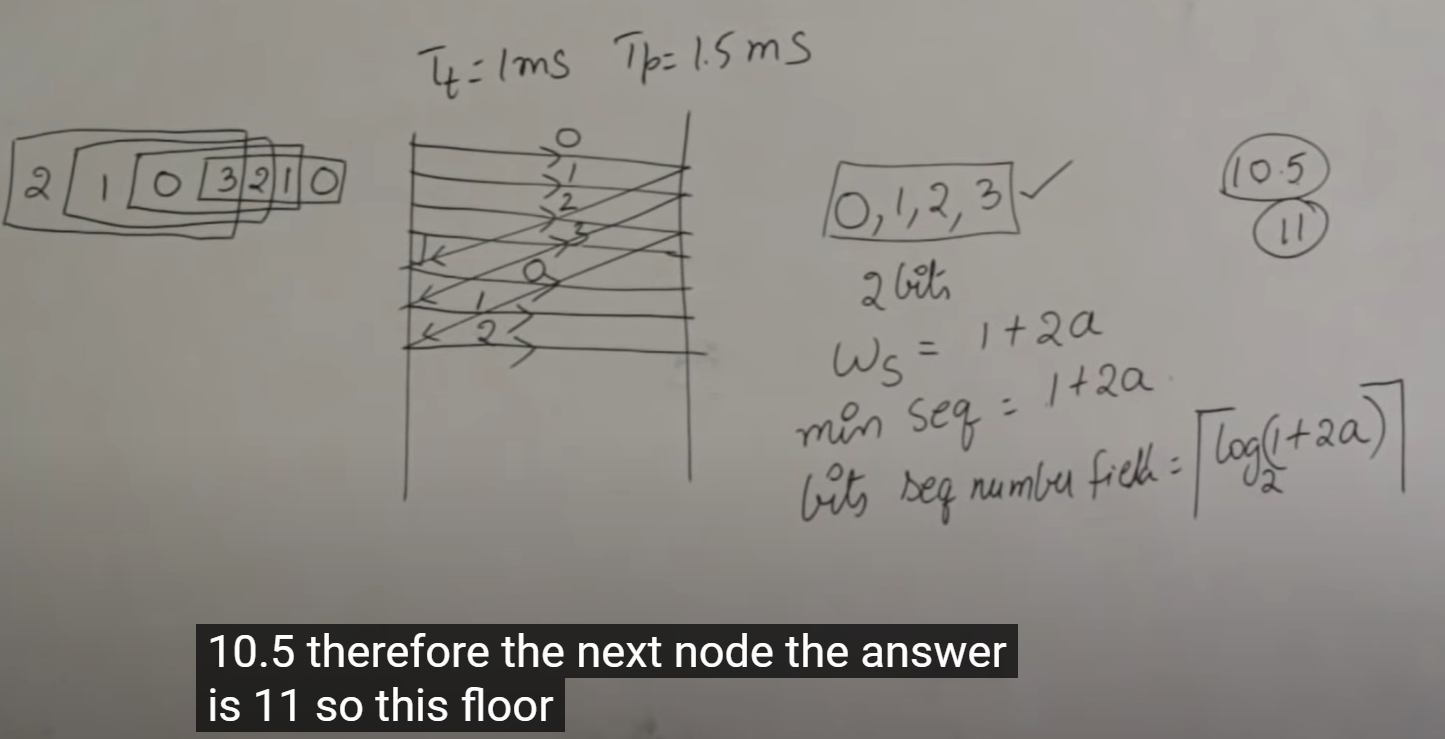 Tt = 1ms Tp = 1.5ms
2 1 0 3 2 1 0
0
1
2
3
0
1
2
0, 1, 2, 3 ✓
2 bits
10.5
11
Ws = 1+2a
min seq = 1+2a
bits seq number field = ⌈log2(1+2a)⌉
10.5 therefore the next node the answer
is 11 so this floor